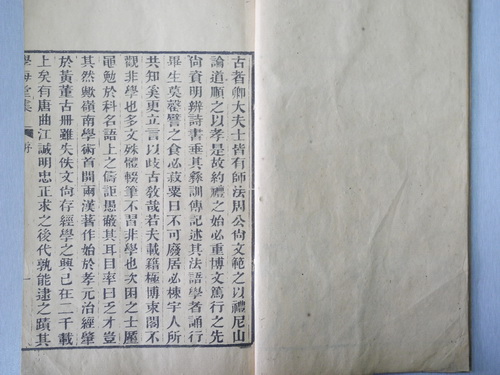 古者卿大夫士皆有師法周公尙文範之以禮尼山
論道順之以孝是故約禮之始必重博文篤行之先
尙資明辨詩書垂其彝訓傳記述其法語學者誦行
畢生莫罄譬之食必菽粟日不可廢居必棟宇人所
共知奚更立言以歧古敎哉若夫載籍極博束閣不
觀非學也多文殊體輟筆不習非學也次困之士厪
黽勉於科名語上之儔詎愚蔽其耳目率曰乏才豈
其然歟嶺南學術首開兩漢著作始於孝元治經肇
於黃董古冊雖失佚文尙存經學之興已在二千載
上矣有唐曲江誠明忠正求之後代孰能逮之蹟其
學海堂集 序 一